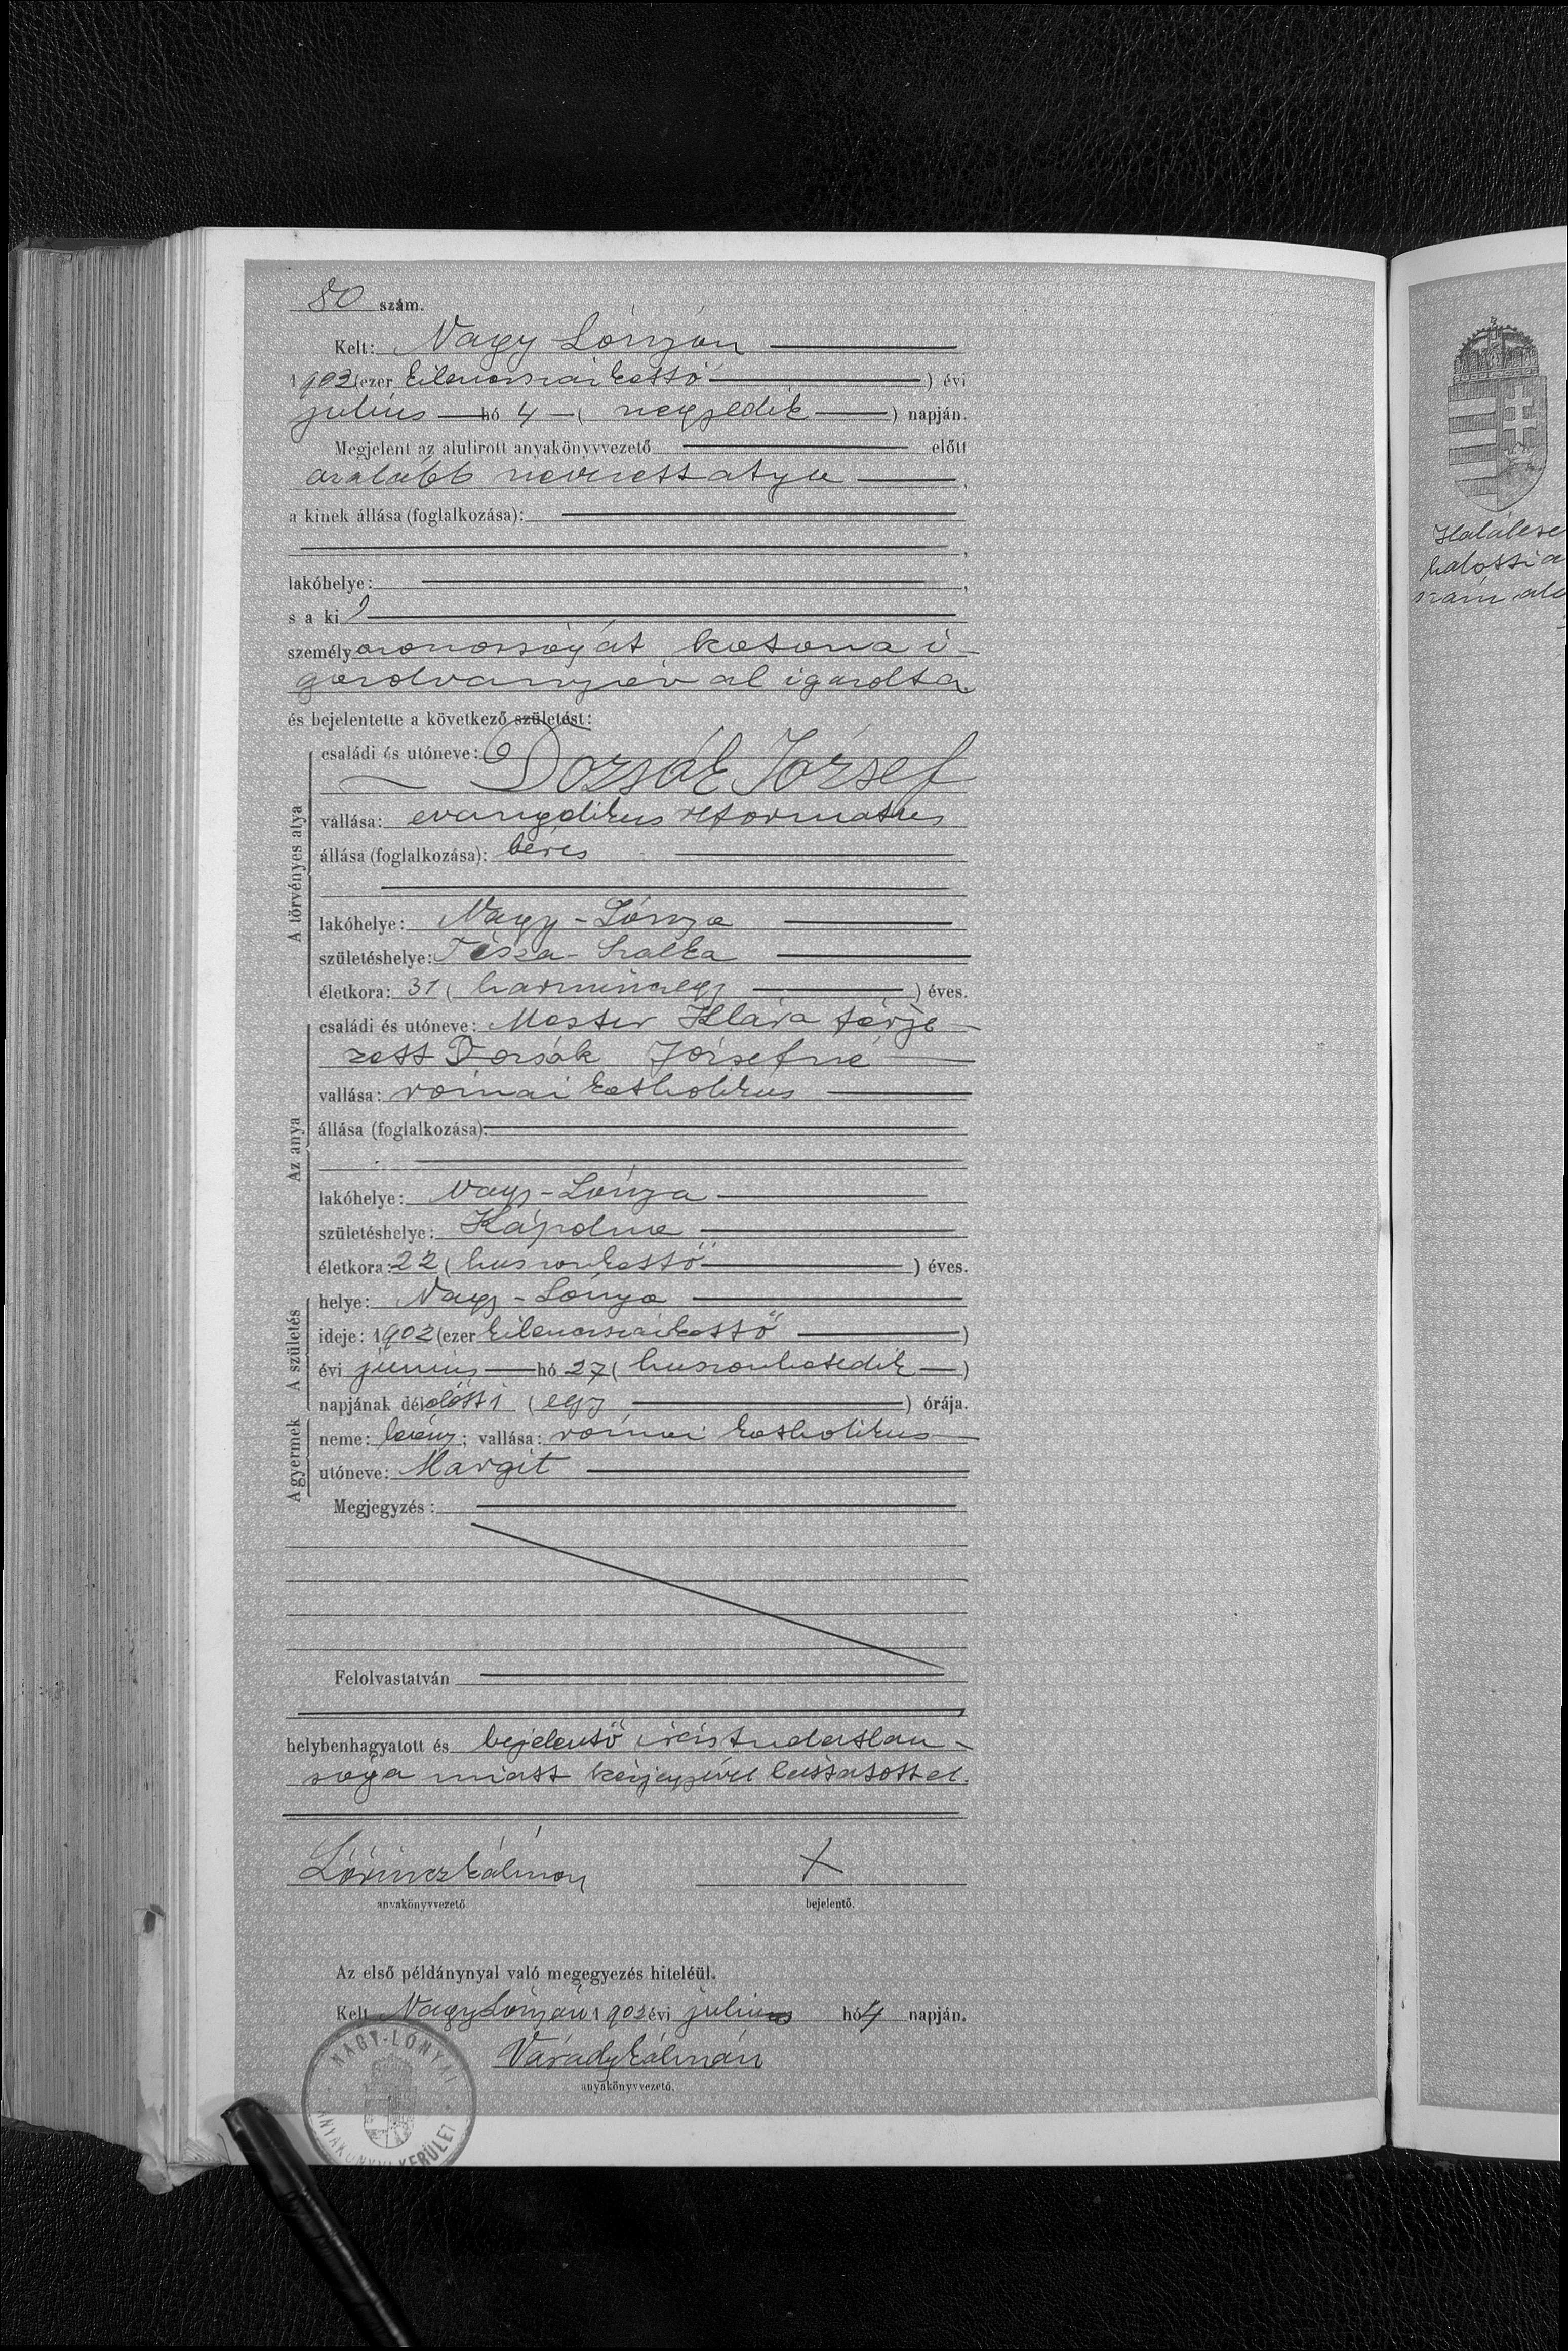 80 szám.
Kelt: Nagy Lónyán
1902 (ezer kilencszázkettő) évi
július hó 4 (negyedik) napján.
Megjelent az alulirott anyakönyvvezető előtt
az alább nevezett atya,
a kinek állása (foglalkozása):
,
lakóhelye: ,
s a ki
személyazonosságát katona i-
gazolványával igazolta
és bejelentette a következő születést:
A törvényes atya
családi és utóneve:
Dorsák József
vallása: evangelikus református
állása (foglalkozása): béres
lakóhelye: Nagy-Lónya
születéshelye: Tisza-Szalka
életkora: 31 (harmincegy) éves.
Az anya
családi és utóneve: Mester Klára férje
zett Dorsák Józsefné
vallása: római katholikus
állása (foglalkozása):
lakóhelye: Nagy-Lónya
születéshelye: Kápolna
életkora: 22 (huszonkettő) éves.
A születés
helye: Nagy-Lónya
ideje: 1902 (ezer kilencszázkettő)
évi június hó 27 (huszonhetedik)
napjának délelőtti (egy) órája.
A gyermek
neme: leány; vallása: római katholikus
utóneve: Margit
Megjegyzés:
Felolvastatván
helybenhagyatott és bejelentő irástudatlan-
sága miatt kézjegyével láttatott el.
Lőrincz Kálmán X
anyakönyvvezető bejelentő.
Az első példánynyal való megegyezés hiteléül.
Kelt Nagy Lónyán 1902 évi július hó 4 napján.
Várady Kálmán
anyakönyvvezető.
NAGY-LÓNYAI
ANYAKÖNYVI KERÜLET